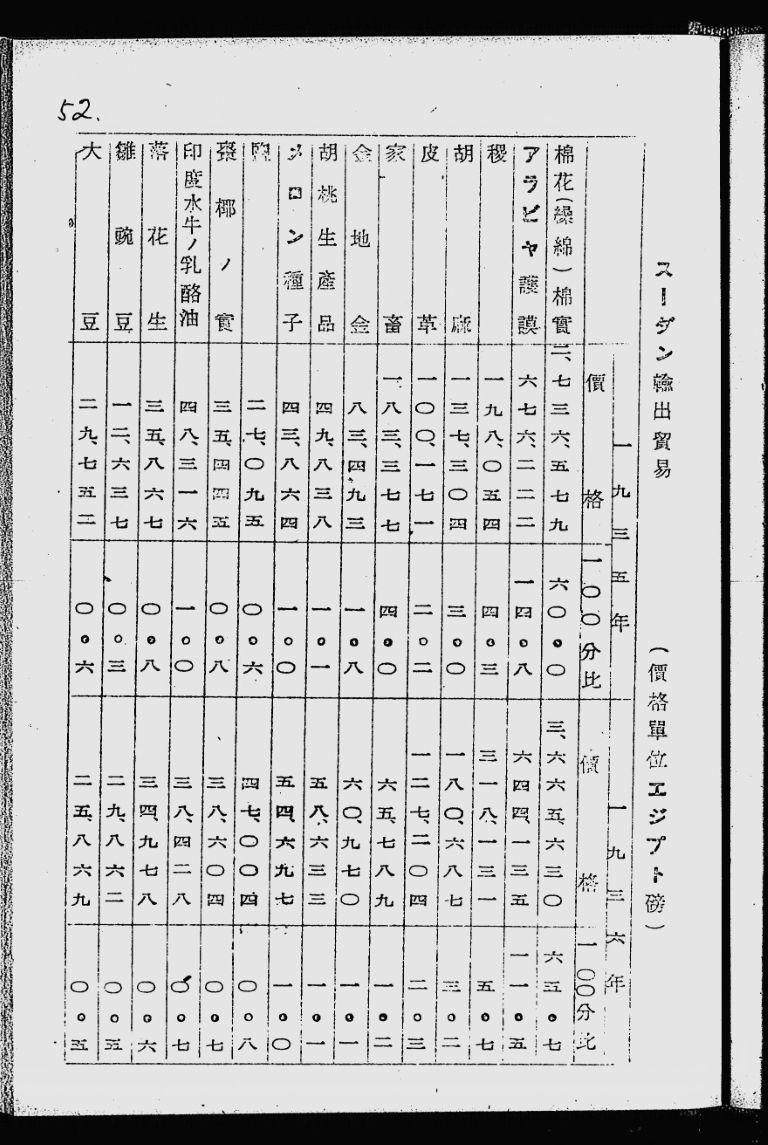 スーダン輸出貿易 （價格單位エジプト磅）
一九三五年 一九三六年
價格 一〇〇分比 價格 一〇〇分比
棉花（繰綿）棉實 二、七三六、五七九 六〇。〇 三、六六五、六三〇 六五。七
アラビヤ護謨 六七六、二二二 一四。八 六四四、一三五 一一。五
稷 一九八、〇五四 四。三 三一八、一三一 五。七
胡麻 一三七、三〇四 三。〇 一八〇、六八七 三。二
皮革 一〇〇、一七一 二。二 一二七、二〇四 二。三
家畜 一八三、三七七 四。〇 六五、七八九 一。二
金地金 八三、四九三 一。八 六〇、九七〇 一。一
胡桃生產品 四九、八三八 一。一 五八、六三三 一。一
メロン種子 四三、八六四 一。〇 五四、六九七 一。〇
二七、〇九五 〇。六 四七、〇〇四 〇。八
棗椰ノ實 三五、四四五 〇。八 三八、六〇四 〇。七
印度水牛ノ乳酪油 四八、三一六 一。〇 三八、四二八 〇。七
落花生 三五、八六七 〇。八 三四、九七八 〇。六
雛豌豆 一二、六三七 〇。三 二九、八六二 〇。五
大豆 二九、七五二 〇。六 二五、八六九 〇。五
52.